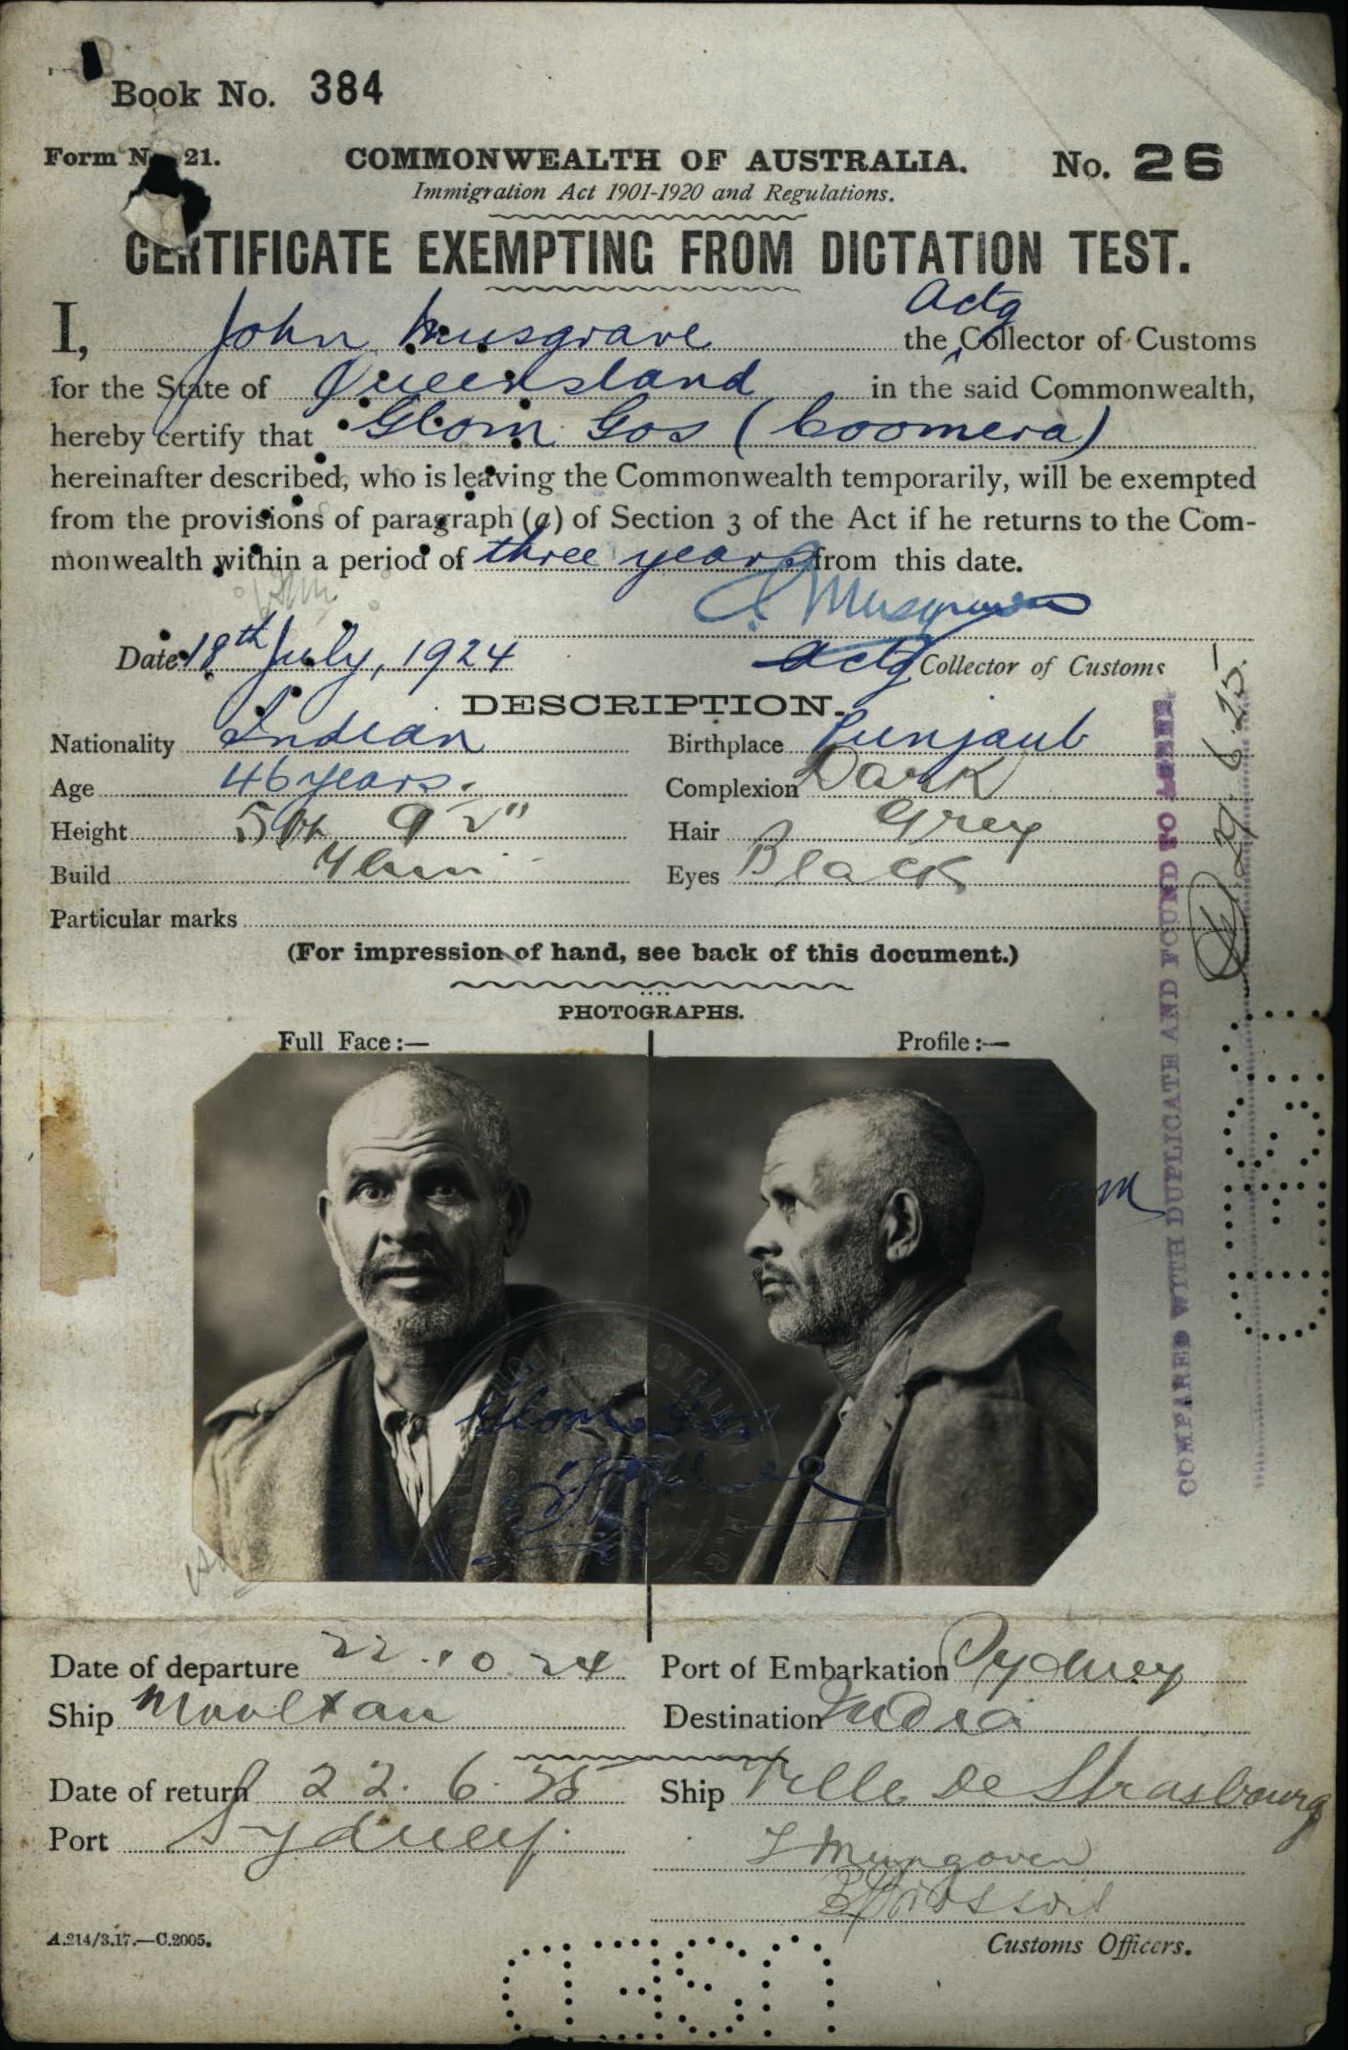 Book No. 384
Form No. 21.
COMMONWEALTH OF AUSTRALIA.
No. 26
Immigration Act 1901-1920 and Regulations.
CERTIFICATE EXEMPTING FROM DICTATION TEST.
I, John Musgrave the Actg Collector of Customs
for the State of Queensland in the said Commonwealth,
hereby certify that Glom Gos (Coomera)
hereinafter described, who is leaving the Commonwealth temporarily, will be exempted
from the provisions of paragraph (a) of Section 3 of the Act if he returns to the Com-
monwealth within a period of three years from this date.
J Musgrave
Date 18th July, 1924
Actg Collector of Customs
DESCRIPTION.
Nationality Indian
Birthplace Punjaub
Age 46 years.
Complexion Dark
Height 5ft 9½"
Hair Grey
Build
Eyes Black
Particular marks
(For impression of hand, see back of this document.)
PHOTOGRAPHS.
Full Face:—
Profile:—
COMPARED WITH DUPLICATE AND FOUND TO AGREE
29.6.25
Glom Gos
Date of departure 22.10.24
Port of Embarkation Sydney
Ship Mooltan
Destination India
Date of return 22.6.25
Ship Ville De Strasbourg
Port Sydney
J Mungoven
A.214/3.17.—C.2005.
Customs Officers.
USED